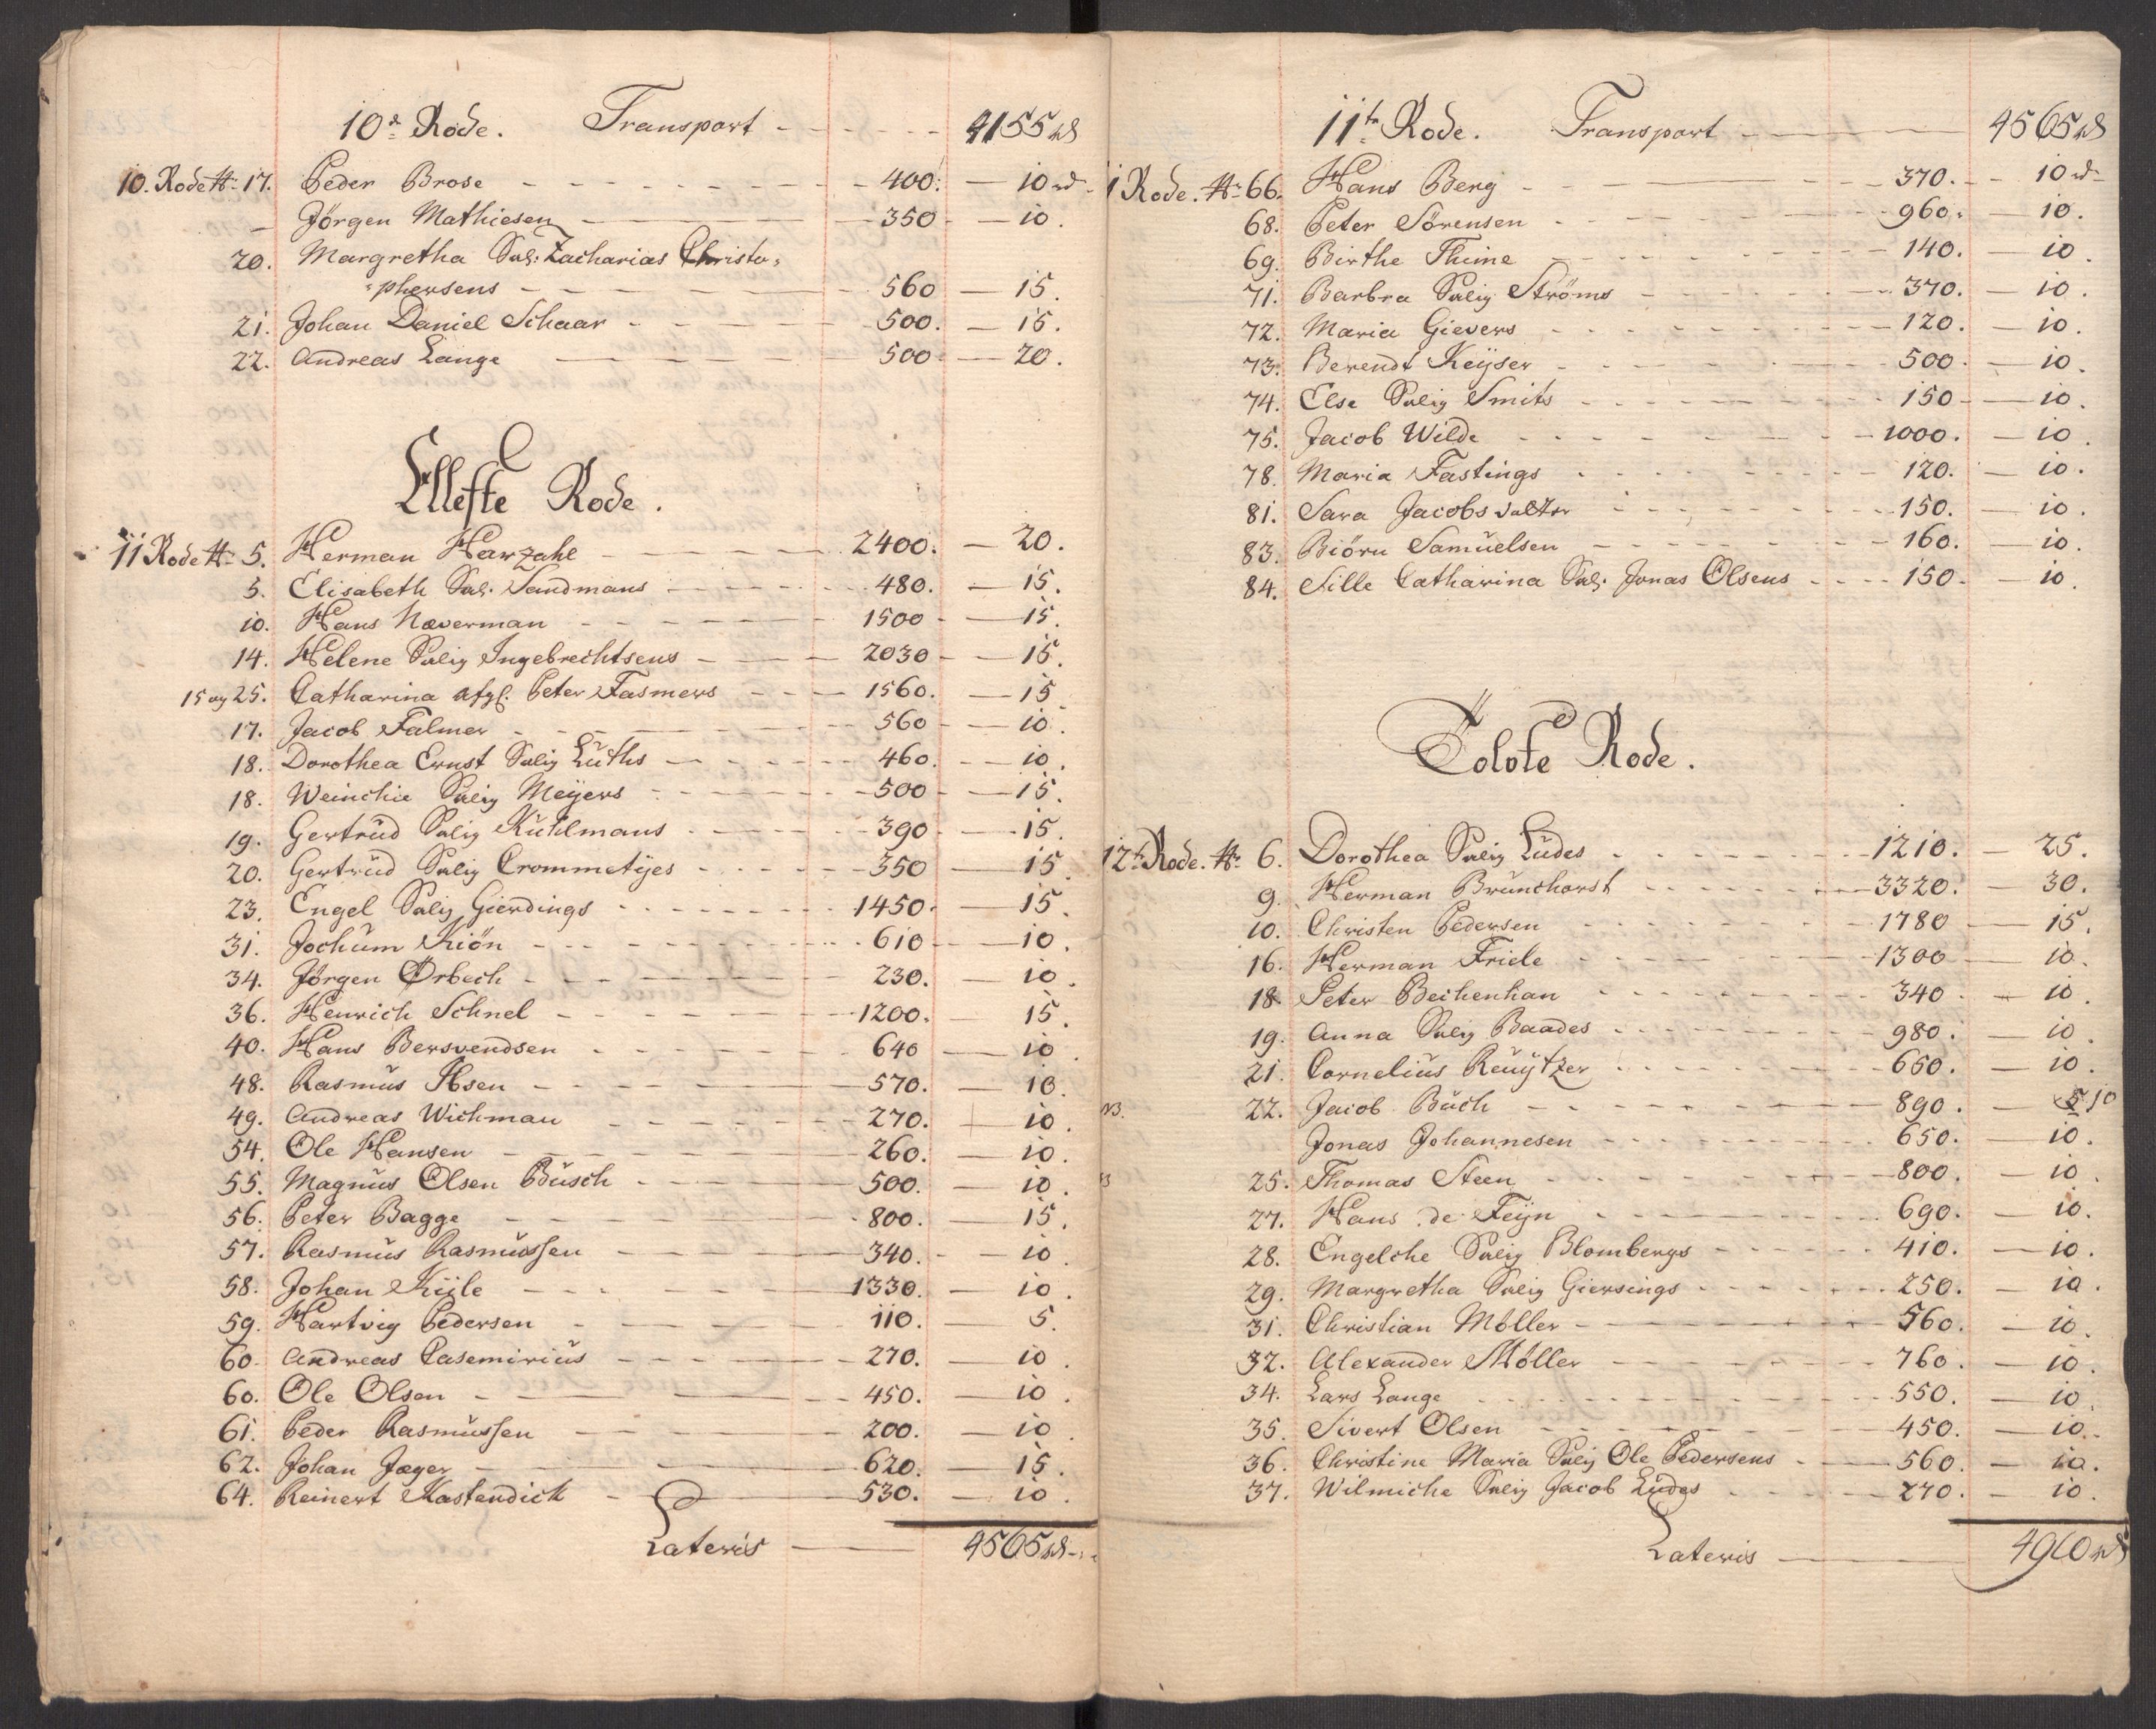 10de Rode. Transport - - - 4155 rd
10. Rode No 17. Peder Brose - - - 400. - 10 rd
- Jörgen Mathiesen - 350 - 10.
20. Margretha Sal: Zacharias Christo=
=phersens - 560 - 15.
21. Johan Daniel Schaar - 500. - 15.
22. Andreas Lange - 500 - 20.
Ellefte Rode.
11 Rode No 5. Herman Harzahl - 2400. - 20.
5. Elisabeth Sal. Sandmans - 480. - 15.
10. Hans Næverman - 1500 - 15.
14. Helene Salig Ingebrechtsens - 2030 - 15.
15 og 25. Catharina afgl. Peter Fasmers - 1560. - 15
17. Jacob Falmer - 560 - 10.
18. Dorothea Ernst Salig Lüths - 460. - 10.
18. Weinchie Salig Meÿers - 500 - 15.
19. Gertrüd Salig Kühlmans - 390 - 15.
20. Gertrüd Salig Crommetÿes - 350 - 15.
23. Engel Salig Gierdings - 1450. - 15.
31. Jochüm Kiön - 610 - 10.
34. Jørgen Ørbech - 230. - 10.
36. Henrich Schnel - 1200. - 15.
40. Hans Bersvendsen - 640 - 10.
48. Rasmüs Ibsen - 570. - 10.
49. Andreas Wichman - 270. - 10.
54. Ole Hansen - 260. - 10.
55. Magnüs Olsen Büsch - 500. - 10.
56. Peter Bagge - 800. - 15.
57. Rasmüs Rasmüssen - 340. - 10
58. Johan Kiile - 1330. - 10.
59. Hartvig Pedersen - 110. - 5.
60. Andreas Casemiriüs - 270. - 10.
60. Ole Olsen - 450. - 10.
61. Peder Rasmüssen - 200. - 10
62. Johan Jæger - 620. - 15.
64. Reinert Kastendick - 530. - 10.
Lateris - 4565 rd
11te Rode. Transport - 4565 rd
1 Rode. No 66. Hans Berg - 370. - 10 rd
68. Peter Sörensen - 960. - 10.
69. Birthe Thime - 140. - 10.
71. Barbra Salig Ströms - 370. - 10.
72. Maria Gievers - 120. - 10.
73. Berendt Keÿser - 500 - 10.
74. Else Salig Smits - 150 - 10.
75. Jacob Wilde - 1000. - 10.
78. Maria Fastings - 120. - 10.
81. Sara Jacobsdatter - 150. - 10.
83. Biörn Samüelsen - 160. - 10.
84. Sille Catharina Sal. Jonas Olsens - 150. - 10.
Tolvte Rode.
12te Rode. No 6. Dorothea Salig Lüdes - 1210. - 25.
9. Herman Brünchorst - 3320. - 30.
10. Christen Pedersen - 1780 - 15.
16. Herman Friele - 1300 - 10.
18. Peter Bechenhan - 340 - 10.
19. Anna Salig Baades - 980. - 10.
21. Cornelius Reüÿtzer - 650. - 10.
NB. 22. Jacob Büch - 890. - 10
Jonas Johannesen - 650. - 10.
25. Thomas Steen - 800. - 10.
27. Hans de Feÿn - 690. - 10.
28. Engelche Salig Blombergs - 410. - 10.
29. Margretha Salig Giersings - 250. - 10.
31. Christian Möller - 560. - 10.
32. Alexander Möller - 760. - 10.
34. Lars Lange - 550. - 10.
35. Sivert Olsen - 450. - 10.
36. Christine Maria Salig Ole Pedersens - 560. - 10.
37. Wilmiche Salig Jacob Lüdes - 270. - 10.
Lateris - 4960 rd